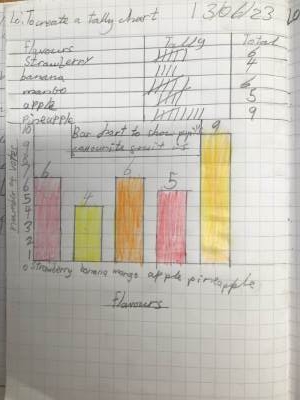 Lo: To create a tally chart 13/06/23
flavours Tally Total
Strawberry 6
banana 4
mango 6
apple 5
pineapple 9
Bar chart to show
favourite fruit
10
9
8
7
6
5
4
3
2
1
0
6 4 6 5 9
strawberry banana mango apple pineapple
flavours